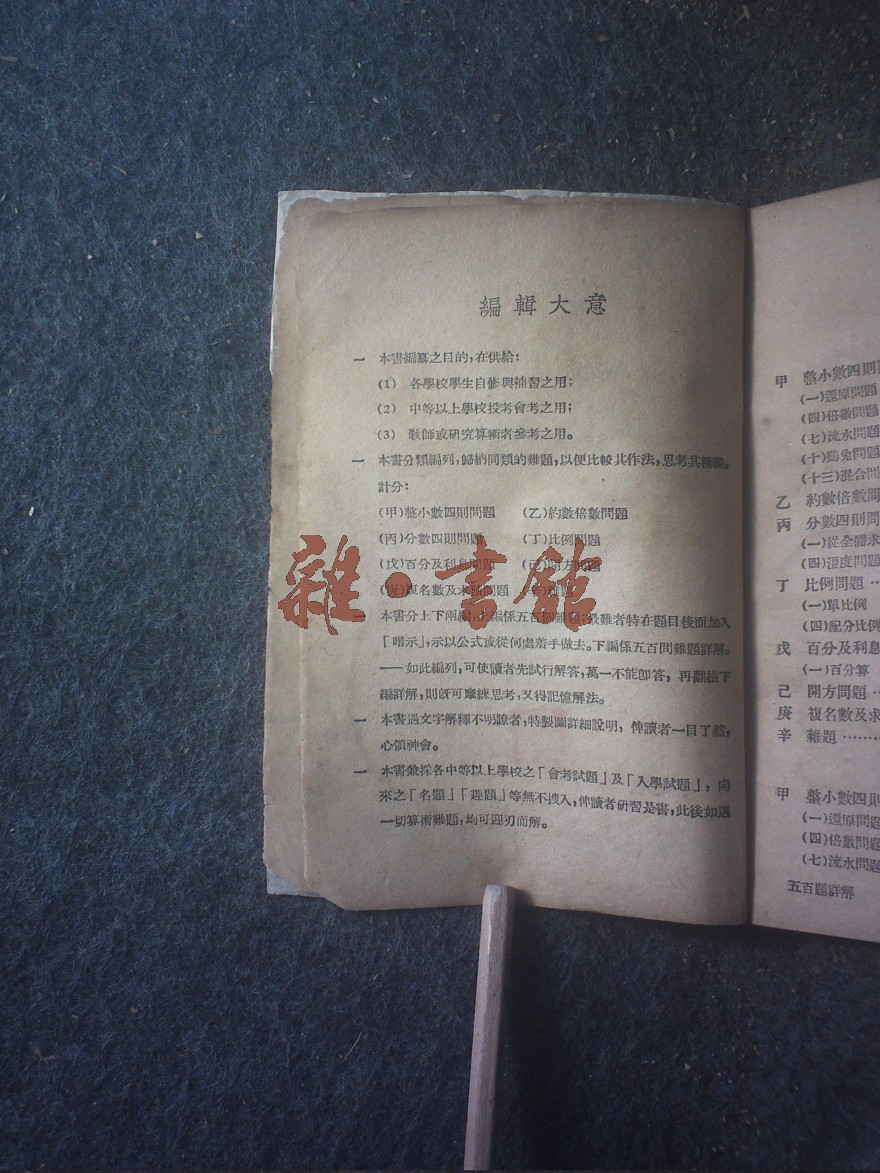 編輯大意
一 本書編纂之目的，在供給：
(1) 各學校學生自修與補習之用；
(2) 中等以上學校投考會考之用；
(3) 敎師或研究算術者參考之用。
一 本書分類編列，歸納同類的難題，以便比較其作法，思考其精義。
計分：
(甲)整小數四則問題 (乙)約數倍數問題
(丙)分數四則問題 (丁)比例問題
(戊)百分及利息問題 (己)開方問題
(庚)複名數及求積問題 (辛)雜題
本書分上下兩編，上編係五百個難題；最難者特在題目後面加入
「暗示」，示以公式或從何處着手做去。下編係五百問難題詳解。
——如此編列，可使讀者先試行解答，萬一不能卽答，再翻檢下
編詳解，則旣可磨練思考，又得記憶解法。
一 本書遇文字解釋不明瞭者，特製圖詳細說明，俾讀者一目了然，
心領神會。
一 本書兼採各中等以上學校之「會考試題」及「入學試題」，向
來之「名題」「趣題」等無不搜入，俾讀者研習是書，此後如遇
一切算術難題，均可迎刃而解。
雜·書館
甲 整小數四則
(一)還原問題
(四)倍數問題
(七)流水問題
(十)鷄兔問題
(十三)混合問
乙 約數倍數問
丙 分數四則問
(一)從全體求
(四)溫度問題
丁 比例問題…
(一)單比例
(四)配分比例
戊 百分及利息
(一)百分算
己 開方問題…
庚 複名數及求
辛 雜題………
甲 整小數四則
(一)還原問題
(四)倍數問題
(七)流水問題
五百題詳解